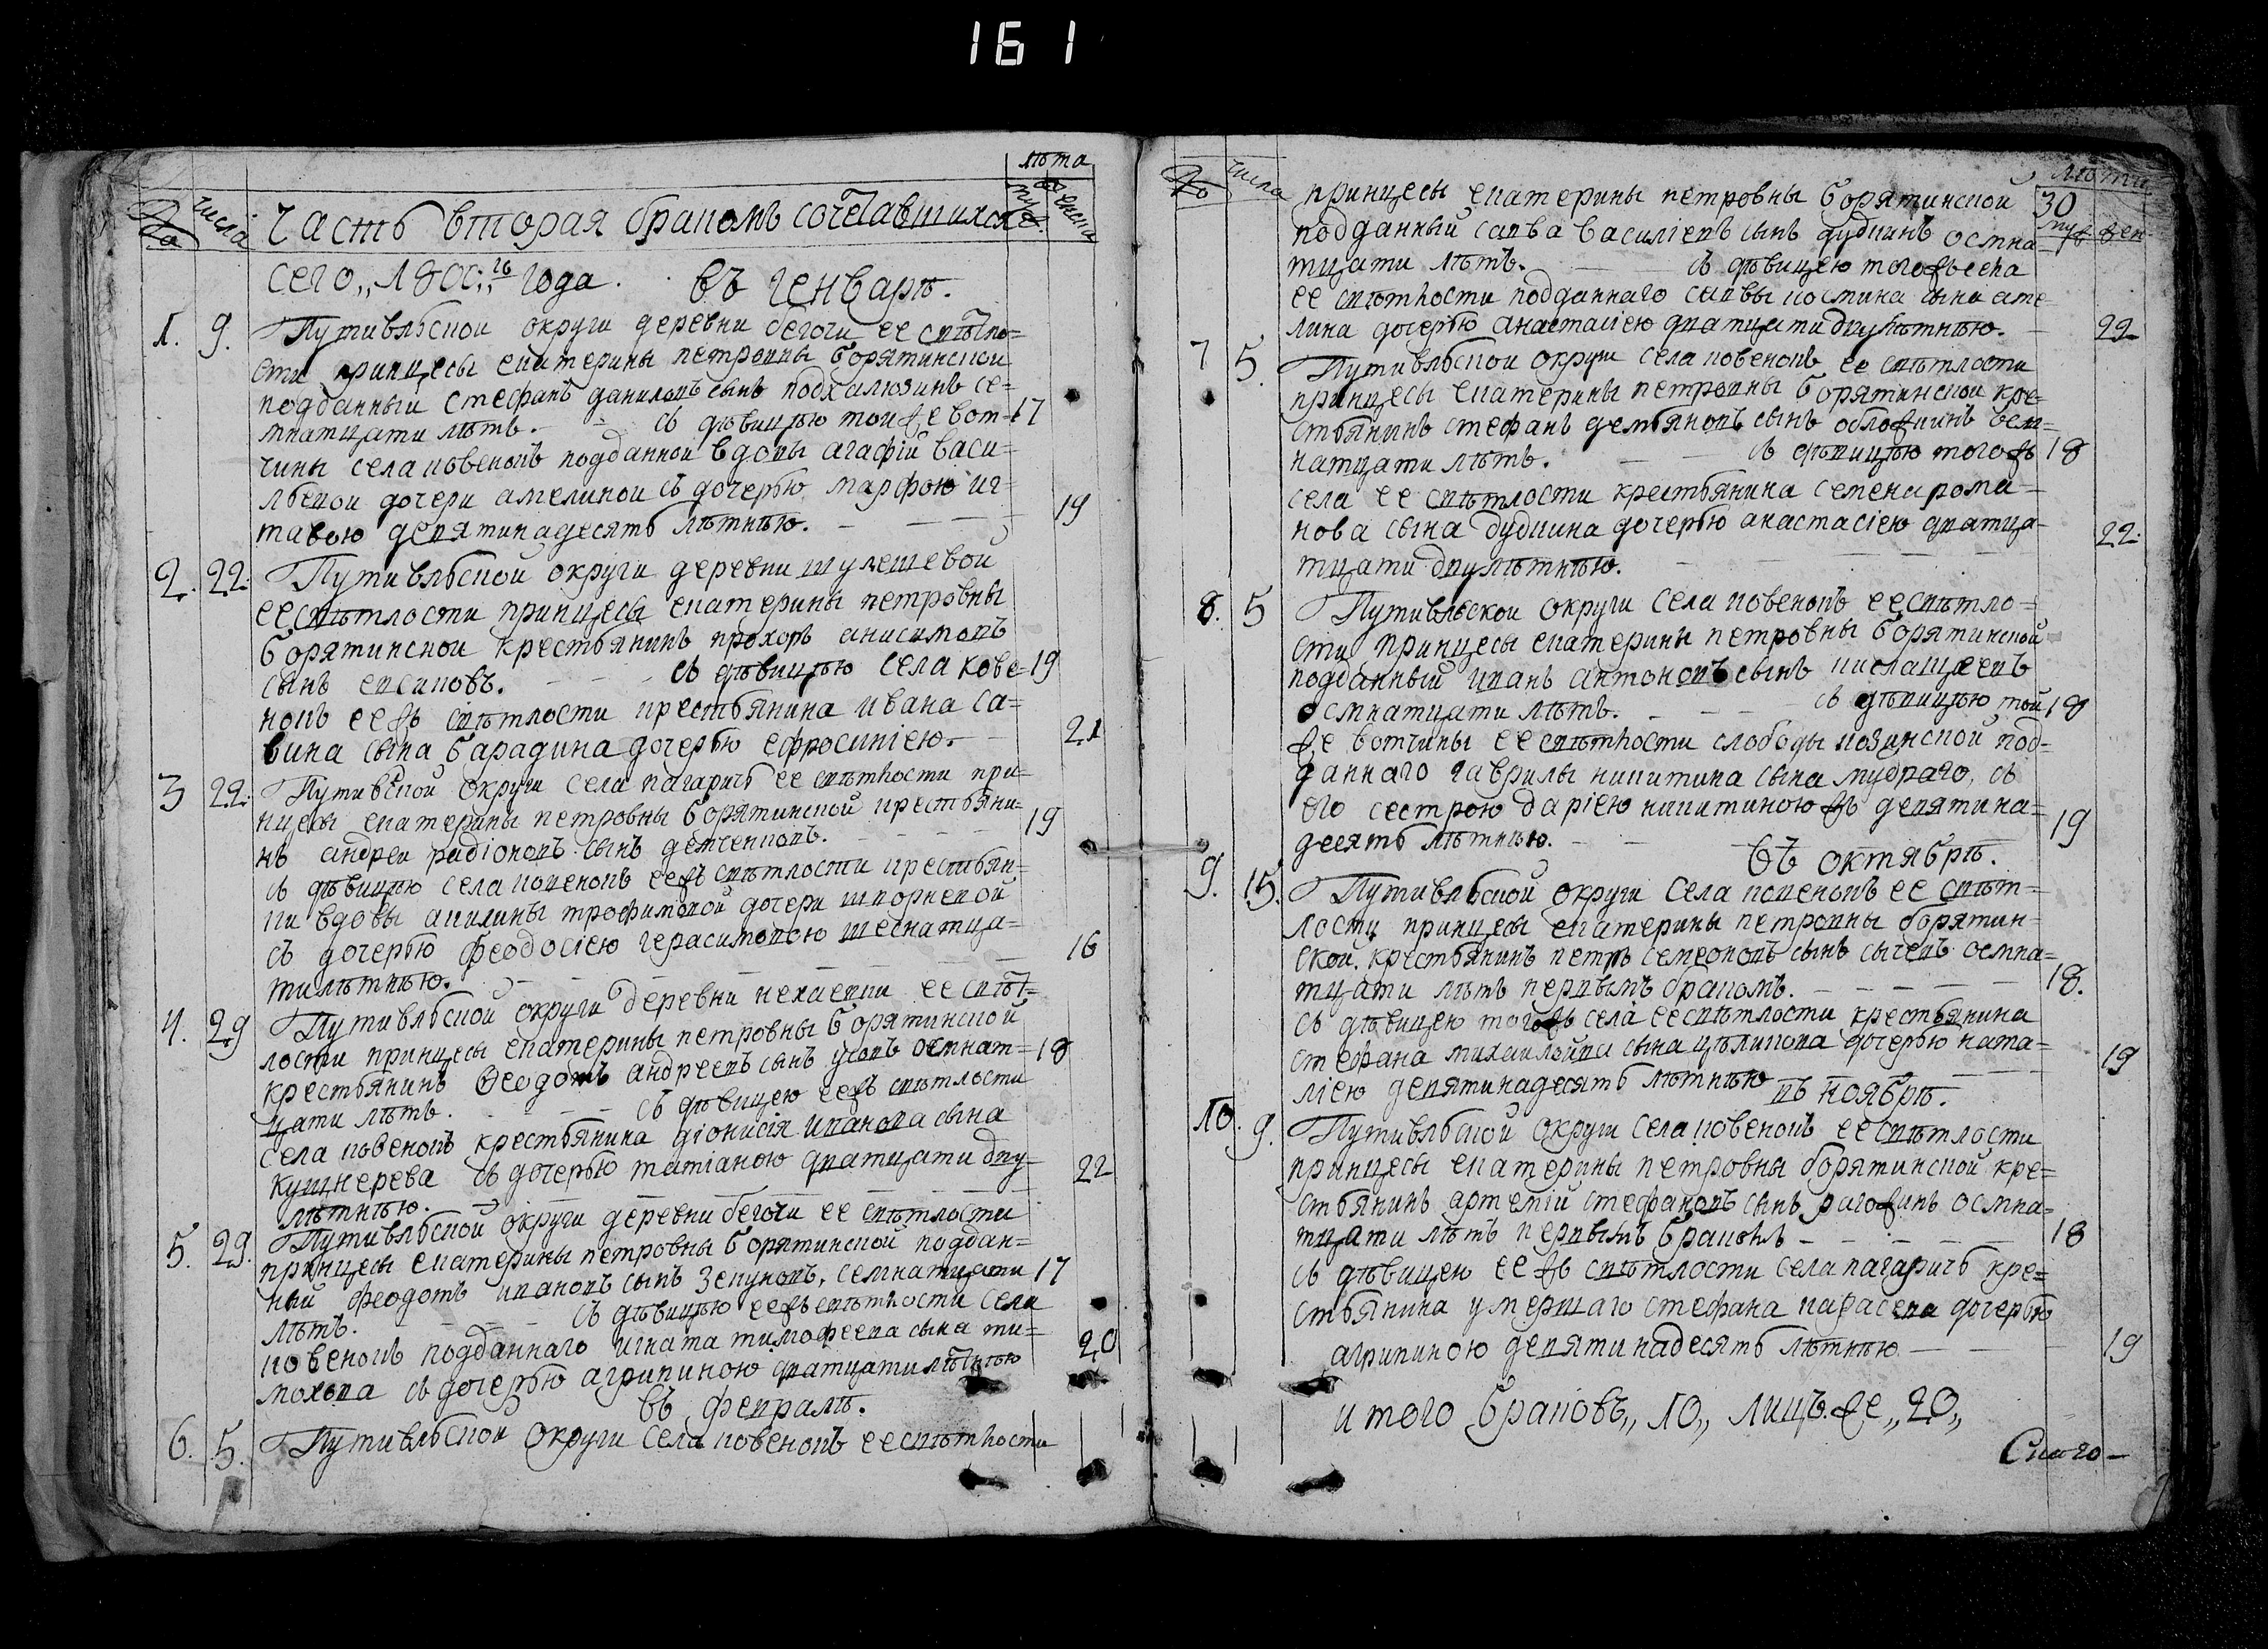 161
лѣта
№ числа Часть вторая бракомъ сочетавшихся муж женска
сего „180 го года. въ генварѣ.
1. 9. Путивльской округи деревни бегочи ее свѣтло=
сти принцесы екатерины петровны борятинской
подданный стефанъ даниловъ сынъ подхалюзинъ се=
мнатцати лѣтъ. — съ дѣвицею той же вот= 17
чины села ковенокъ подданной вдовы агафiй васи=
льевой дочери амелиной съ дочерью марфою иг=
натовою девятинадесять лѣтнею. — 19
2. 22. Путивльской округи деревни шулешевой
ее свѣтлости принцесы екатерины петровны
борятинской крестьянинъ прохоръ анисимовъ
сынъ евсиковъ. — съ дѣвицею села кове= 19
нокъ ее жъ свѣтлости крестьянина ивана са=
вина сына барадина дочерью ефросинiею. — 21
3 22. Путивской округи села нагаричь ее свѣтлости при=
нцесы екатерины петровны борятинской крестьяни=
нъ андреи радiоновъ сынъ демченковъ. — 19
съ дѣвицею села ковенокъ ее жъ свѣтлости крестьян=
ки вдовы акилины трофимовой дочери шкорневой
съ дочерью феодосiею герасимовою шеснатца=
тилѣтнею. — 16
4. 29 Путивльской округи деревни нехаевки ее свѣт=
лости принцесы екатерины петровны борятинской
крестьянинъ Ѳеодотъ андреевъ сынъ усовъ осмнат= 18
цати лѣтъ. — съ дѣвицею ее жъ свѣтлости
села ковенокъ крестьянина дiонисiя иванова сына
кушнерева съ дочерью татiаною дватцати дву=
лѣтнею. — 22
5. 29. Путивльской округи деревни бегочи ее свѣтлости
принцесы екатерины петровны борятинской поддан=
ный феодотъ ивановъ сынъ зекуновъ, семнатцати 17
лѣтъ. — съ дѣвицею ее жъ свѣтлости села
ковенокъ подданнаго игната тимофеева сына ти=
мохова съ дочерью агрипиною дватцатилѣтнею 20
въ февралѣ.
6. 5. Путивльской округи села ковенокъ ее свѣтлости
№ числа лѣта
принцесы екатерины петровны борятинской 30
подданный савва василiевъ сынъ дудкинъ осмна= муж жен
тцати лѣтъ. — съ дѣвицею того жъ села
ее свѣтлости подданнаго саввы космина сына аме
лина дочерью анастасiею дватцати двулѣтнею. — 22
7 5. Путивльской округи села ковенокъ ее свѣтлости
принцесы екатерины петровны борятинской кре=
стьянинъ стефанъ демьяновъ сынъ обложкинъ осм=
натцати лѣтъ. — съ дѣвицею того жъ 18
села ее свѣтлости крестьянина семена рома=
нова сына дудкина дочерью анастасiею дватца=
тцати двулѣтнею. — 22.
8. 5 Путивльской округи села ковенокъ ее свѣтло=
сти принцесы екатерины петровны борятинской
подданный иванъ антоновъ сынъ кислащеевъ
осмнатцати лѣтъ. — съ дѣвицею той 18
же вотчины ее свѣтлости слободы козинской под=
даннаго гаврилы никитина сына мудраго, съ
его сестрою дарiею никитиною жъ девятина=
десять лѣтнею. — 19
въ октябрѣ.
9. 15. Путивльской округи села ковенокъ ее свѣт=
лости принцесы екатерины петровны борятин=
ской. крестьянинъ петръ семеоновъ сынъ сычевъ осмна=
тцати лѣтъ первымъ бракомъ. — 18.
съ дѣвицею того жъ села ее свѣтлости крестьянина
стефана михайлова сына цѣликова дочерью ната=
лiею девятинадесять лѣтнею 19
въ ноябрѣ.
10. 9. Путивльской округи села ковенокъ ее свѣтлости
принцесы екатерины петровны борятинской кре=
стьянинъ артемiй стефановъ сынъ рагожинъ осмна=
тцати лѣтъ первымъ бракомъ — 18
съ дѣвицею ее жъ свѣтлости села нагаричь кре=
стьянина умершаго стефана карасева дочерью
агрипиною девятинадесять лѣтнею — 19
итого браковъ „10„ лицъ же „20„